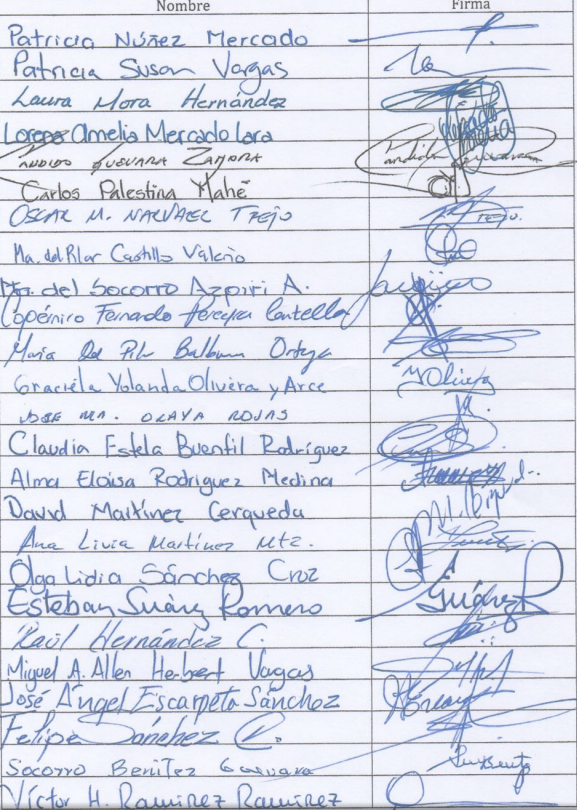 Nombre Firma
Patricia Núñez Mercado
Patricia Susan Vargas
Laura Mora Hernández
Lorena Amelia Mercado Lara
Candido Guevara Zamora
Carlos Palestina Mahé
Oscar M. Narvaez Trejo Trejo.
Ma. del Pilar Castillo Valerio
Ma. del Socorro Azpiri A.
Copérnico Fernando Pereyra
Maria Del Pilar Ortega
Graciela Yolanda Olivera y Arce Y Olivera
José Ma. Olaya Rojas
Claudia Estela Buenfil Rodríguez
Alma Eloisa Rodriguez Medina
David Martínez Cerqueda
Ana Livia Martínez Mtz.
Olga Lidia Sánchez Cruz
Esteban Suárez Romero Suárez R
Raúl Hernández C.
Miguel A. Allen Herbert Vargas
José Ángel Escarpeta Sánchez
Felipe Sánchez
Socorro Benitez Guevara
Víctor H. Ramírez Ramírez